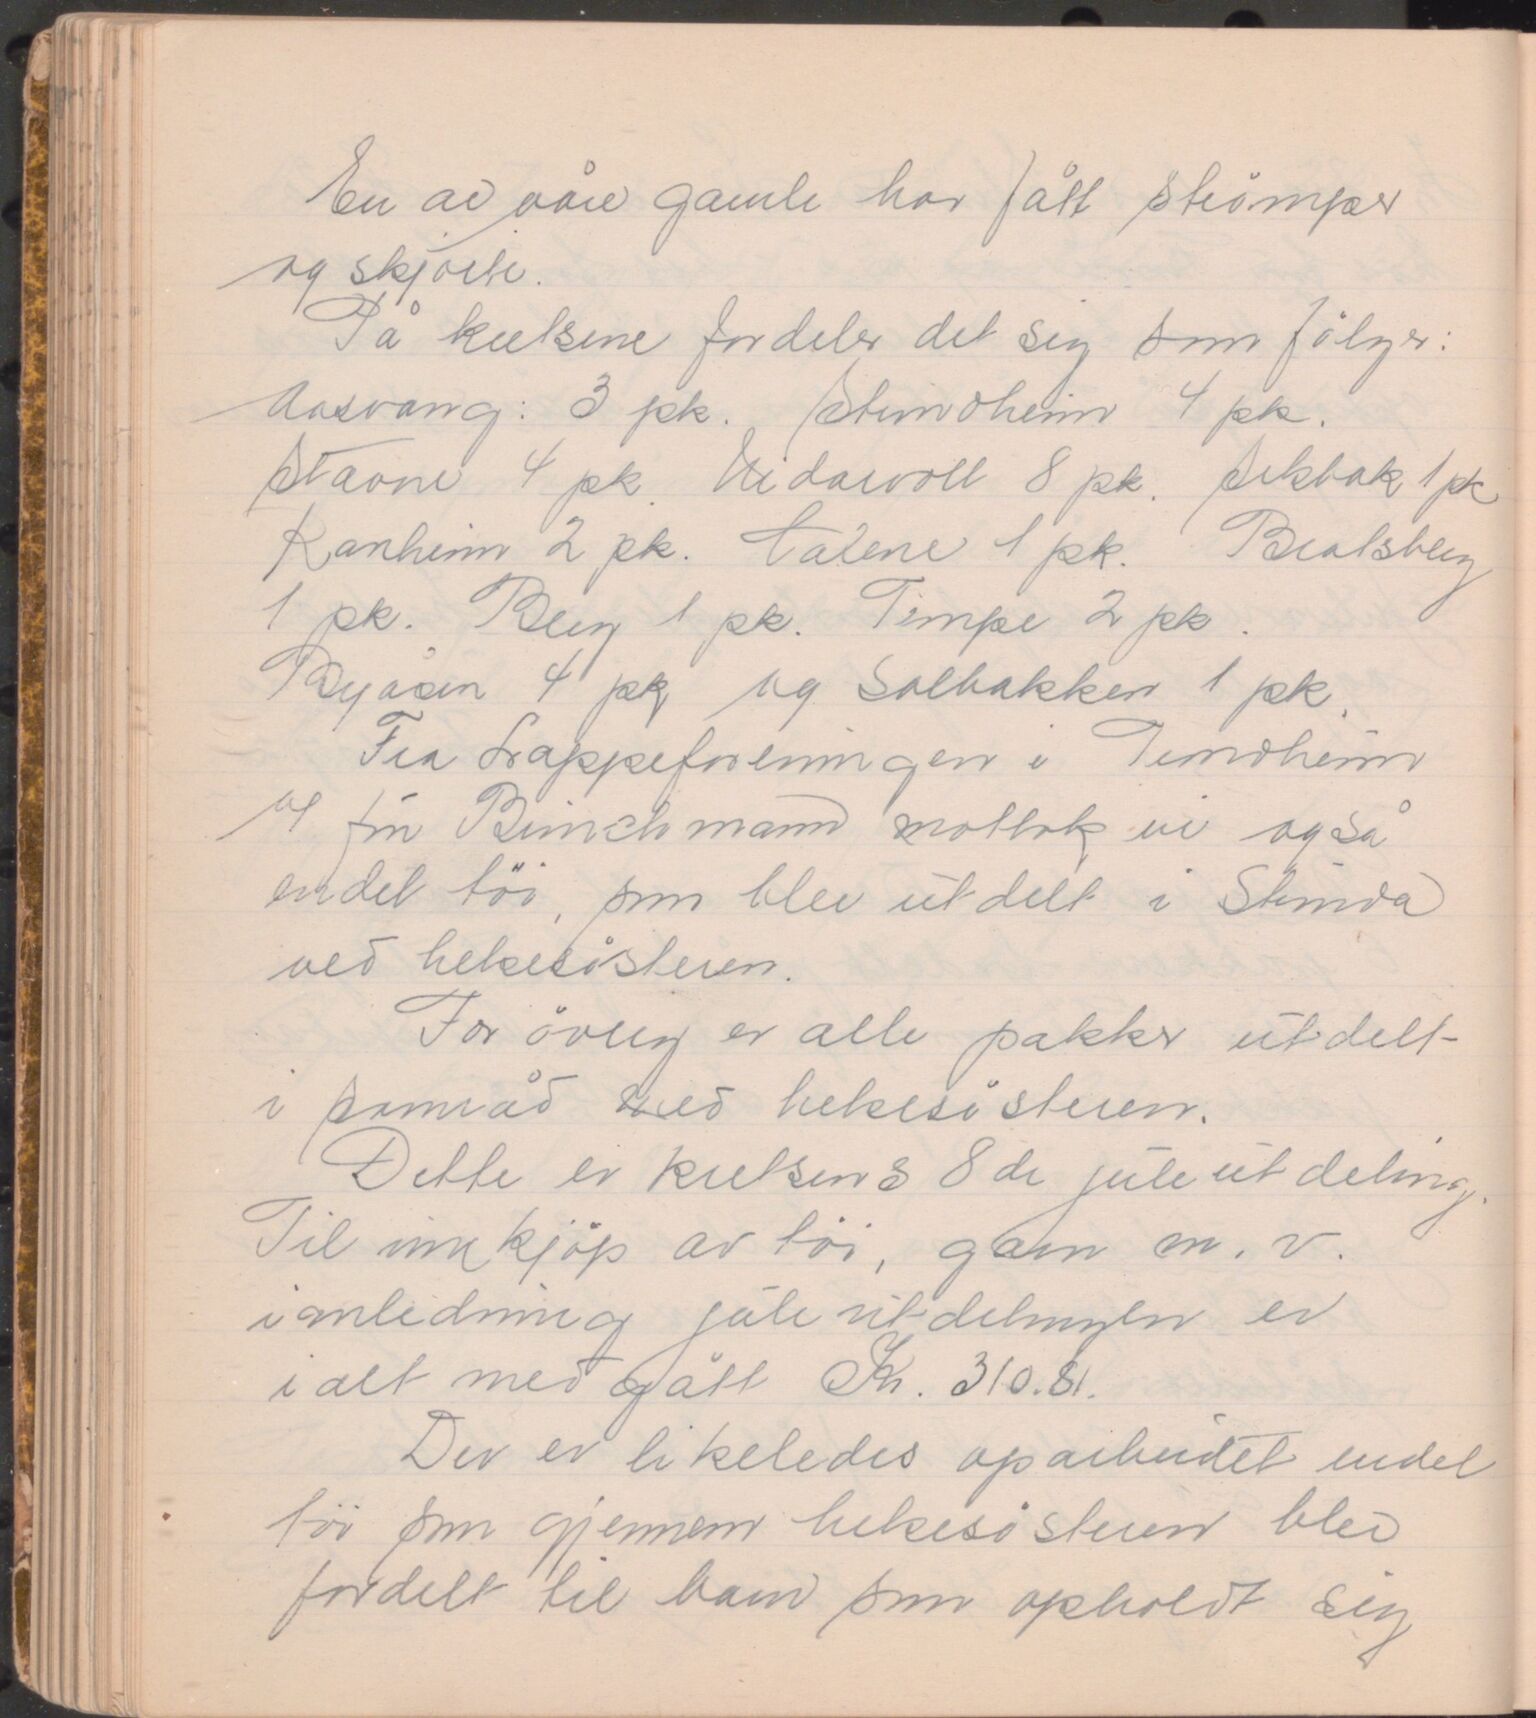 En av våre gamle har fått strömper
og skjorte.
På kretsene fordeler det sig som fölger:
Aasvang: 3 pk. Strindheim 4 pk.
Stavne 4 pk. Nidarvoll 8 pk. Selsbak 1 pk
Ranheim 2 pk. 1 pk. Bratsberg
1 pk. Berg 1 pk. Tempe 2 pk.
Byåsen 4 pk og Solbakken 1 pk.
Fra Lappeforeningen i Trondheim
og fru mottok vi også
endel töi, som blev utdelt i Strinda
ved helsesösteren.
For övrig er alle pakker utdelt
i samråd med helsesösteren.
Dette er kretsens 8de juleutdeling.
Til innkjöp av töi, garn m. v.
i anledning juleutdelingen er
ialt medgått Kr. 310.81.
Der er likeledes oparbeidet endel
töi som gjennem helsesösteren blev
fordelt til barn som opholdt sig